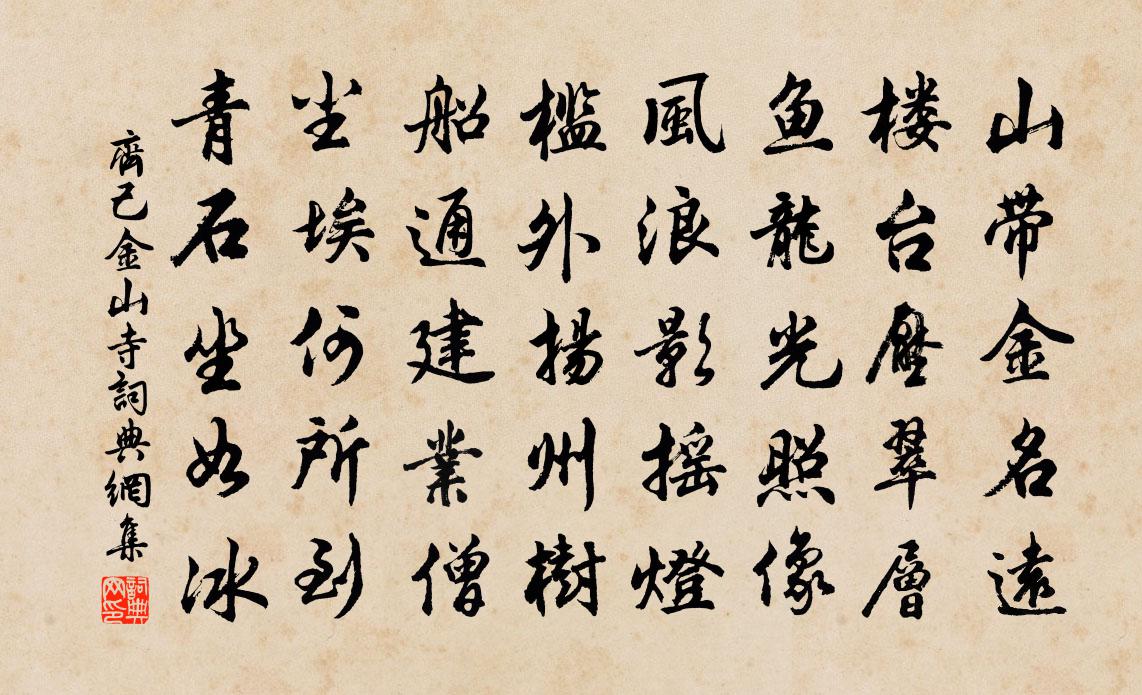 山带金名遠
楼台壓翠層
鱼龍光照像
風浪影摇燈
檻外揚州樹
船通建業僧
尘埃何所到
青石坐如冰
齊己金山寺詞典網集
詞典网印